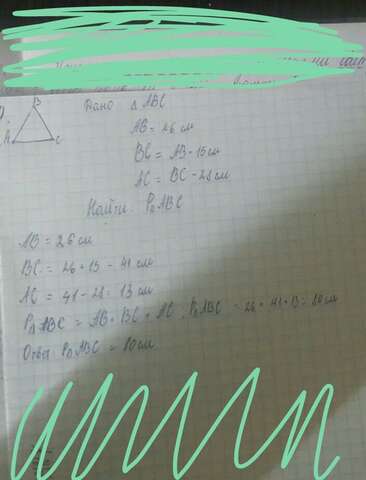 B
Дано Δ ABC
A C
AB = 26 см
BC = AB - 15 см
AC = BC - 28 см
Найти PΔ ABC
AB = 26 см
BC = 26 + 15 = 41 см
AC = 41 - 28 = 13 см
PΔ ABC = AB + BC + AC, PΔABC = 26 + 41 + 13 = 80 см
Ответ PΔ ABC = 80 см